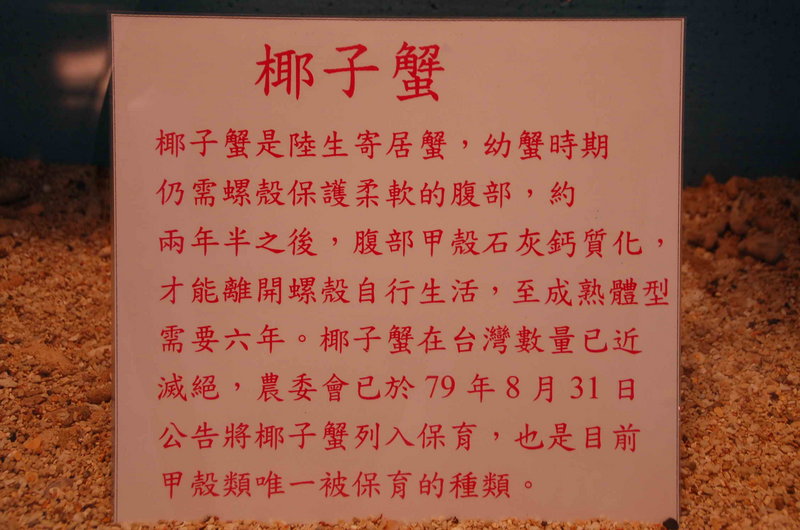 椰子蟹
椰子蟹是陸生寄居蟹，幼蟹時期
仍需螺殼保護柔軟的腹部，約
兩年半之後，腹部甲殼石灰鈣質化，
才能離開螺殼自行生活，至成熟體型
需要六年。椰子蟹在台灣數量已近
滅絕，農委會已於 79 年 8 月 31 日
公告將椰子蟹列入保育，也是目前
甲殼類唯一被保育的種類。